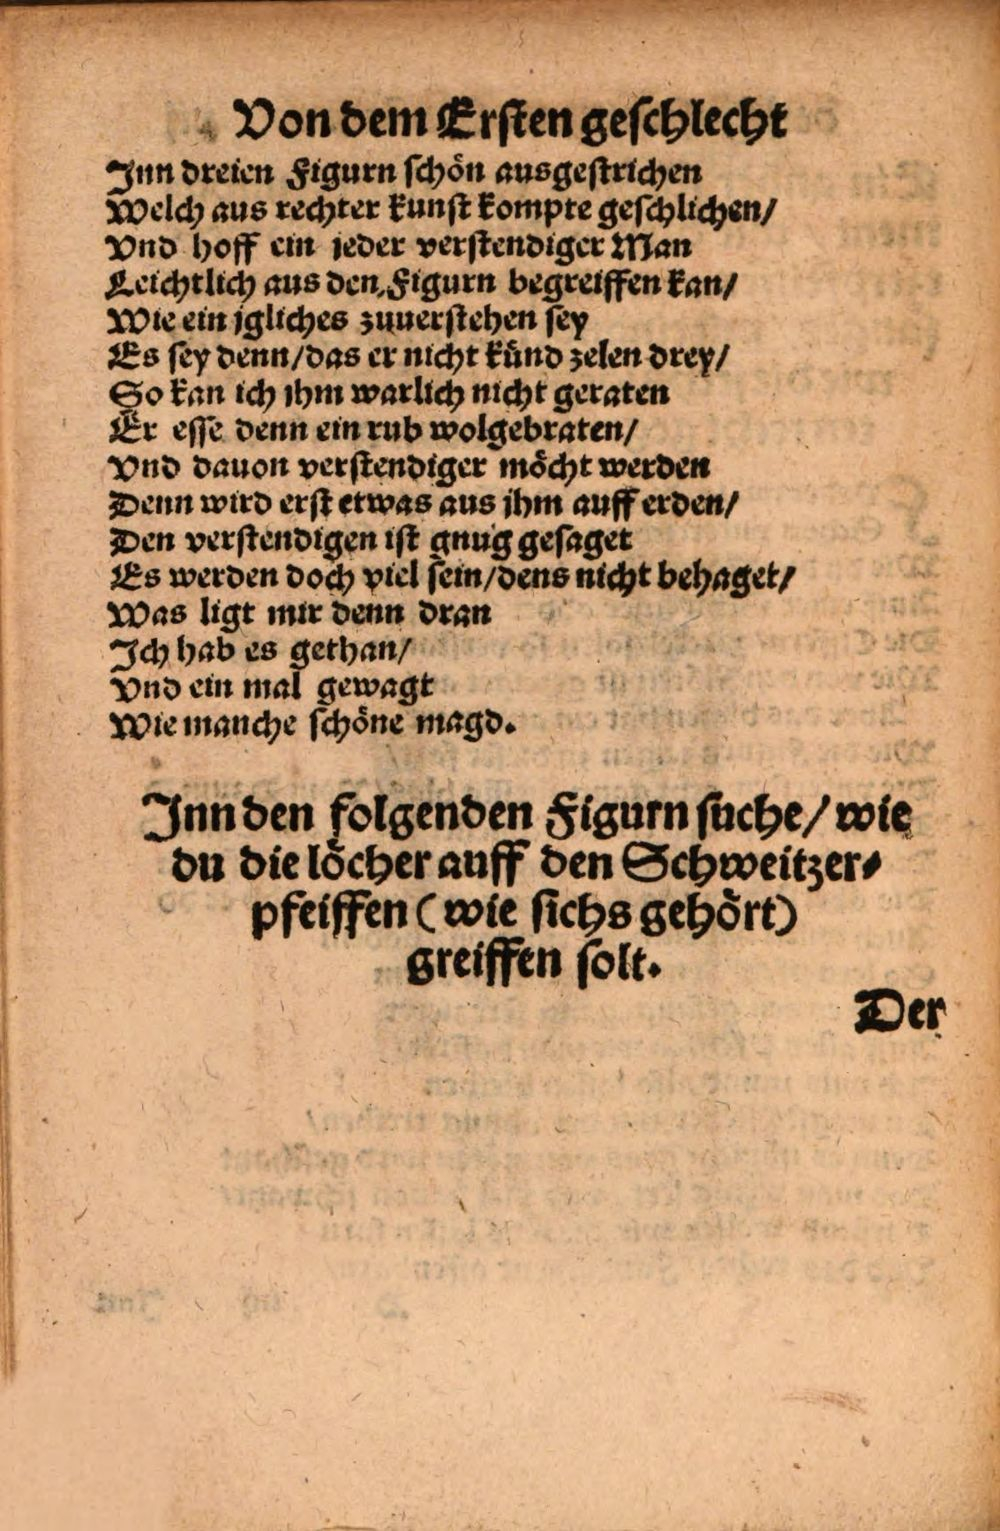 Von dem Ersten geschlecht
Inn dreien Figurn schön ausgestrichen
Welch aus rechter kunst kompt geschlichen/
Vnd hoff ein jeder verstendiger Man
Leichtlich aus den Figurn begreiffen kan/
Wie ein jgliches zuuerstehen sey
Es sey denn/das er nicht künd zelen drey/
So kan ich jhm warlich nicht geraten
Er esse denn ein rub wolgebraten/
Vnd dauon verstendiger möcht werden
Denn wird erst etwas aus jhm auff erden/
Den verstendigen ist gnug gesaget
Es werden doch viel sein/dens nicht behaget/
Was ligt mir denn dran
Ich hab es gethan/
Vnd ein mal gewagt
Wie manche schöne magd.
Inn den folgenden Figurn suche/wie
du die löcher auff den Schweitzer-
pfeiffen (wie sichs gehört)
greiffen solt.
Der